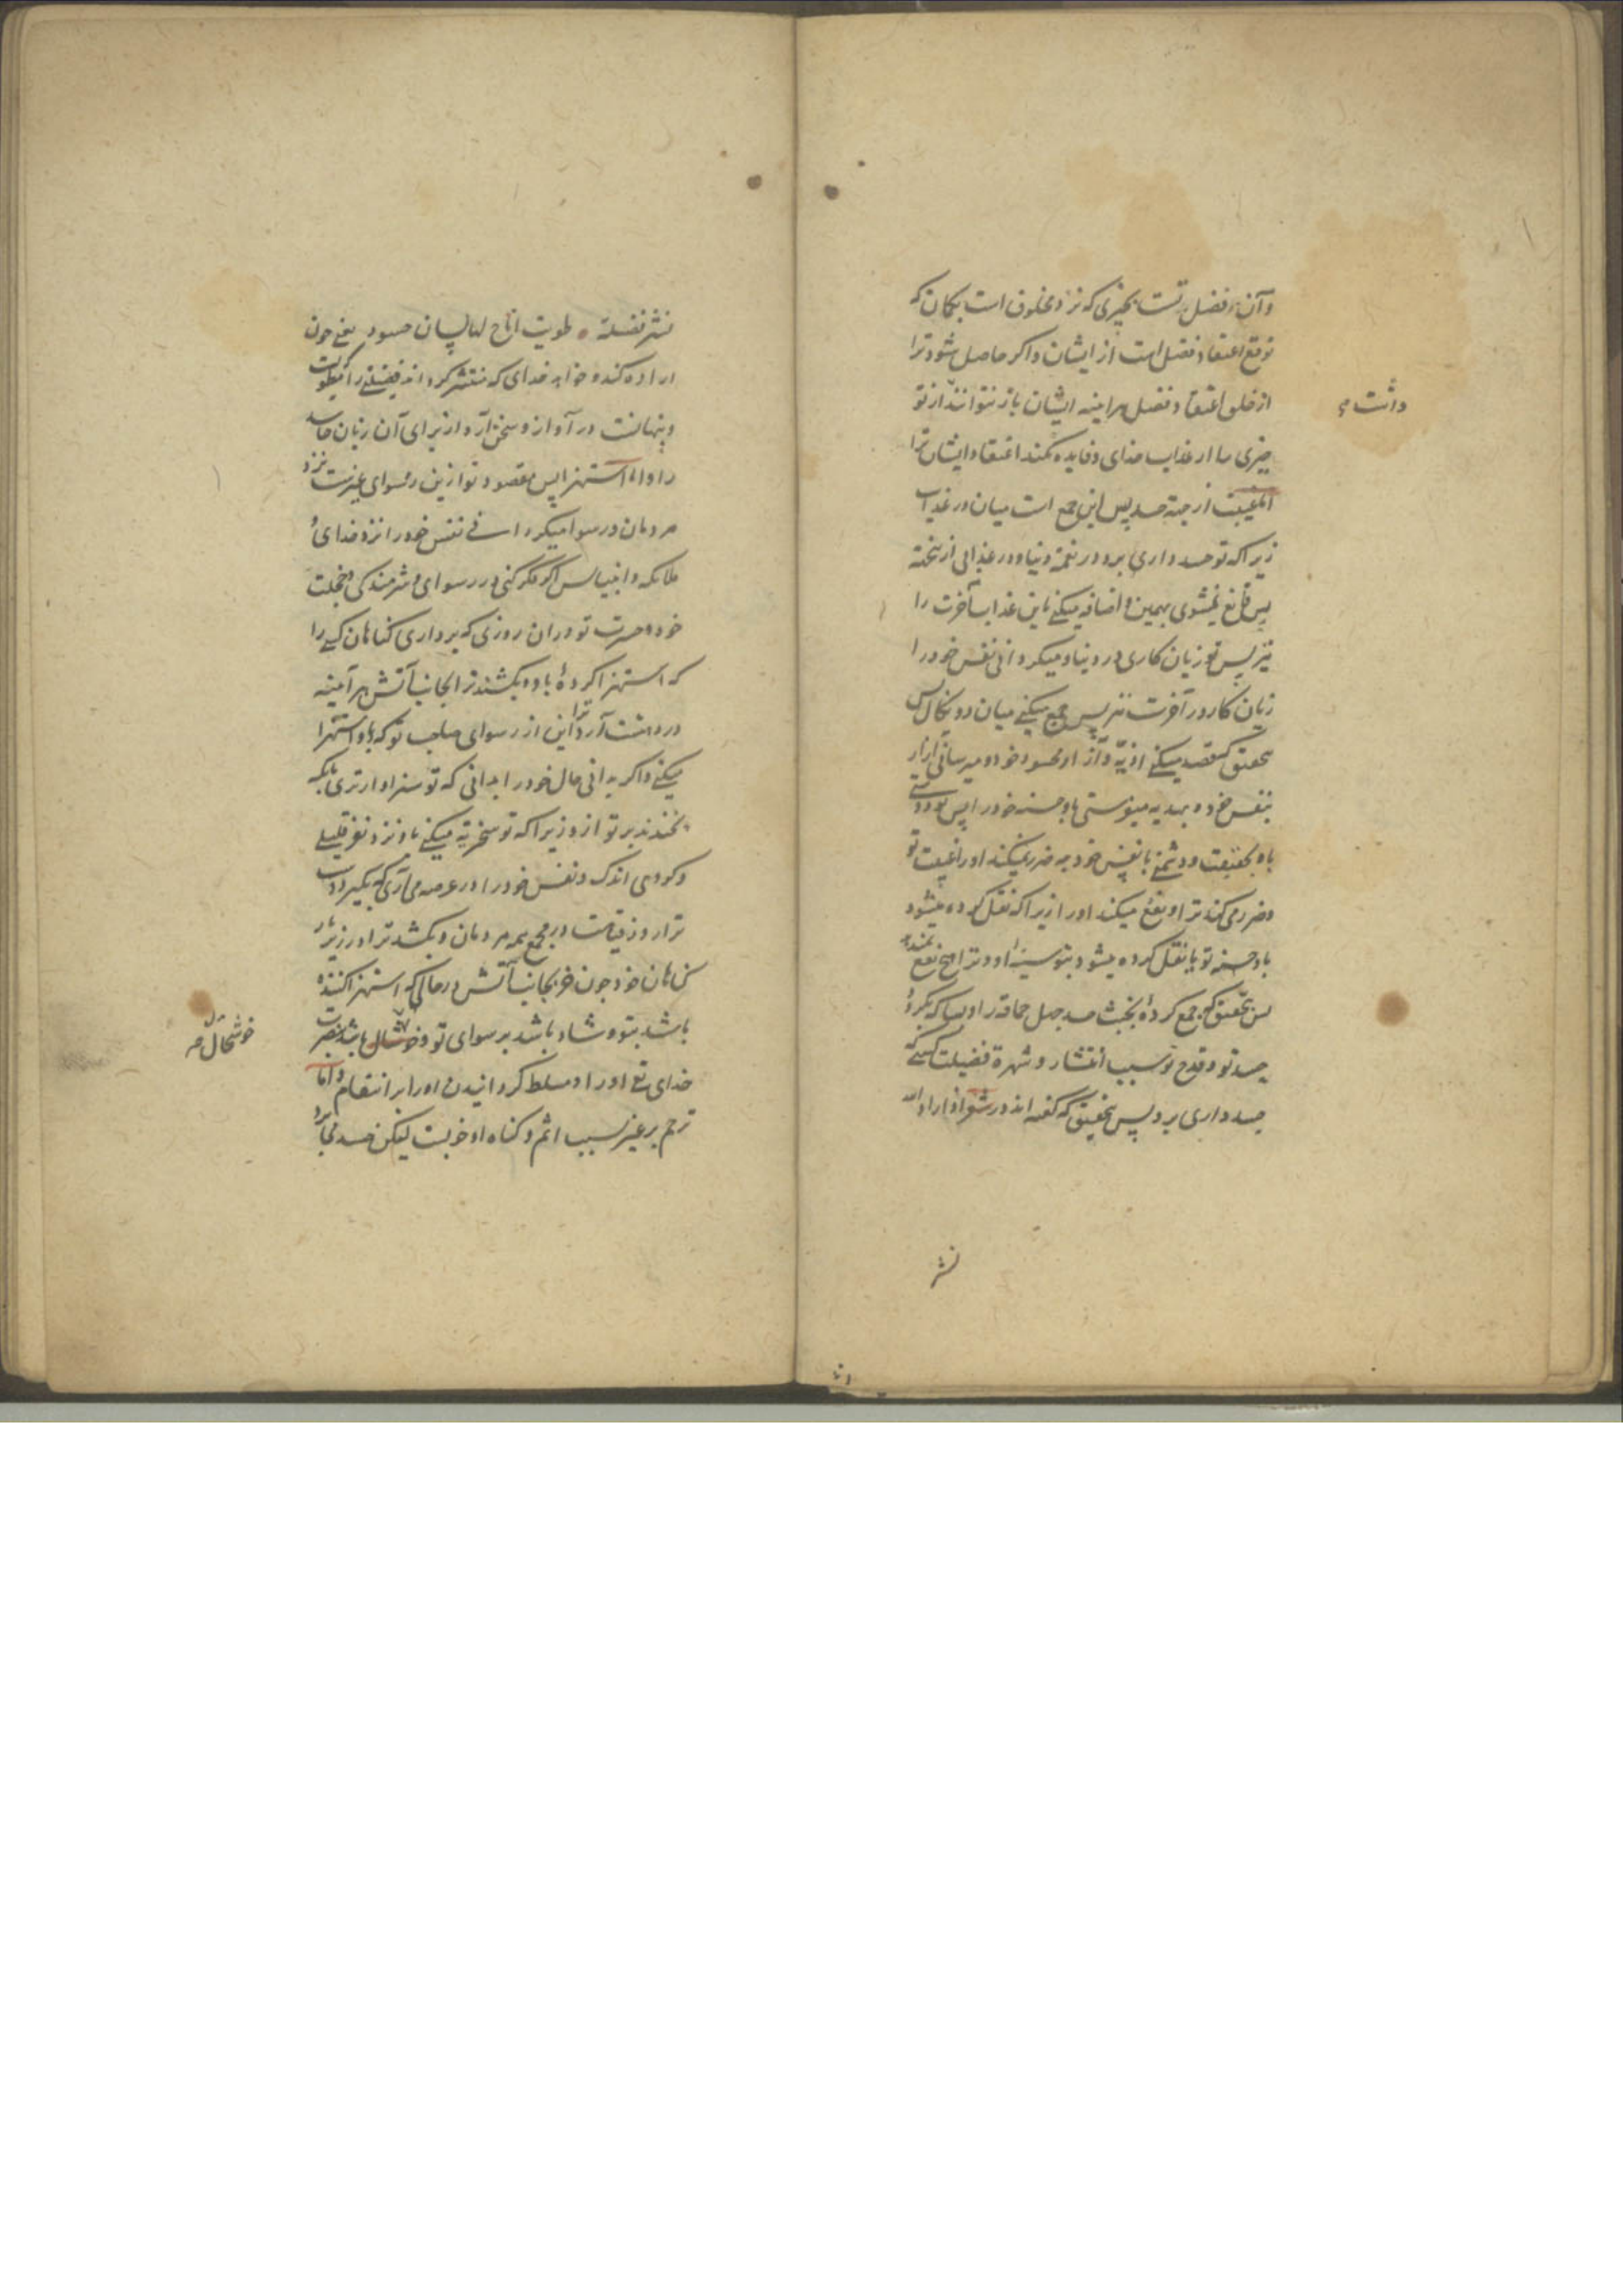 وآن فضل تست بچیزی که نزد مخلوق است بکمان که
توقع اعتقاد فضل است از ایشان واکر حاصل شود ترا
از خلق اعتقاد فضل هراینه ایشان باز نتوانند از تو
داشت
چیزی را از عذاب خدای وفایده نکند اعتقاد ایشان ترا
از جهة حسد پس این جمع است میان دو عذاب
زیراکه تو حسد داری برو در نعمة دنیا ودر عذابی از
پس قانع نمیشوی بهمین واضافه میکنی باین عذاب آخرت را
نیز پس تو زیان کاری در دنیا ومیکردانی نفس خود را
زیان کار در آخرت نیز پس جمع میکنی میان دو نکال پس
بتحقیق که قصد میکنی اذیة وآزار محسود خود ومیرسانی آزار
بنفس خود وهدیه میفرستی باو حسنه خود را پس تو دوستی
باو بحقیقت ودشمنی با نفس خود چه ضرر نمیکند او را غیبت تو
وضرر می کند ترا ونفع میکند او را زیراکه نقل کرده میشود
باو حسنه تو یا نقل کرده میشود بتو سیئه او وترا هیچ نفع نمیکند
پس بتحقیق که جمع کردهٔ بخبث حسد جهل حماقة را وبسا که بکردد
حسد تو وقدح تو سبب انتشار وشهرة فضیلت کسی که
حسد داری برو پس بتحقیق که کفته اند در شعر اذا اراد الله
نشر
نشر فضیلة طویت اتاح لها لسان حسود یعنی چون
اراده کند وخواهد خدای که منتشر کرداند فضیلتی را که مطویست
وپنهانست در آواز وسخن آرد از برای آن زبان حاسد
را واما استهزا پس مقصود تو ازین رسوای غیرست نزد
مردمان ورسوا میکردانی نفس خود را نزد خدای و
ملائکه وانبیا پس اکر فکر کنی در رسوای وشرمندکی وخجلت
خود وحسرت تو در آن روزی که برداری کناهان کسی را
که استهزا کردهٔ باو وبکشند ترا بجانب آتش هر آینه
در دهشت آرد ترا این از رسوای صاحب تو که باو استهزا
میکنی واکر بدانی حال خود را بدانی که تو سزاوارتری بآنکه
بخندند بر تو ازو زیراکه تو سخریة میکنی باو نزد نفر قلیلی
وکروهی اندک ونفس خود را در عرصه می آری که بکیرد دست
ترا روز قیامت در مجمع همه مردمان وبکشد ترا در زیر بار
کناهان خود چون خر بجانب آتش در حالتی که استهزا کننده
باشد بتو وشاد باشد برسوای تو وخوشحال باشد بنصرت
خوشحال
خدای تع او را ومسلط کردانیدن او را بر انتقام واما
ترحم بر غیر بسبب اثم وکناه او خوبست لیکن حسد